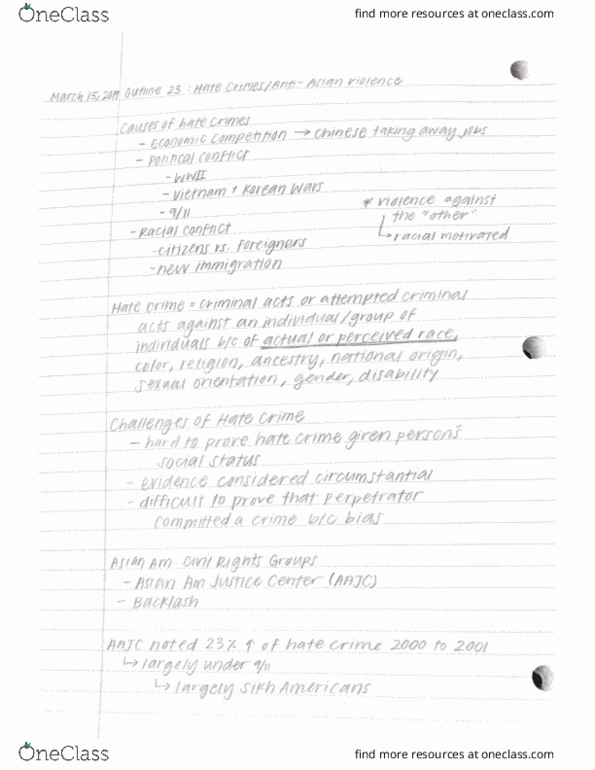 OneClass
find more resources at oneclass.com
March 15, 2019 Outline 23 : Hate Crimes/Anti-Asian Violence
Causes of hate crimes
- Economic Competition → Chinese taking away jobs
- Political Conflict
- WWII
- Vietnam + Korean Wars
- 9/11
* violence against
the "other"
↳ racial motivated
- Racial Conflict
- citizens vs. foreigners
- new immigration
Hate crime = criminal acts or attempted criminal
acts against an individual/group of
individuals b/c of actual or perceived race,
color, religion, ancestry, national origin,
sexual orientation, gender, disability
Challenges of Hate Crime
- hard to prove hate crime given person's
social status
- evidence considered circumstantial
- difficult to prove that perpetrator
committed a crime b/c bias
Asian Am. Civil Rights Groups
- Asian Am Justice Center (AAJC)
- Backlash
AAJC noted 23% ↑ of hate crime 2000 to 2001
↳ largely under 9/11
↳ largely Sikh Americans
OneClass
find more resources at oneclass.com